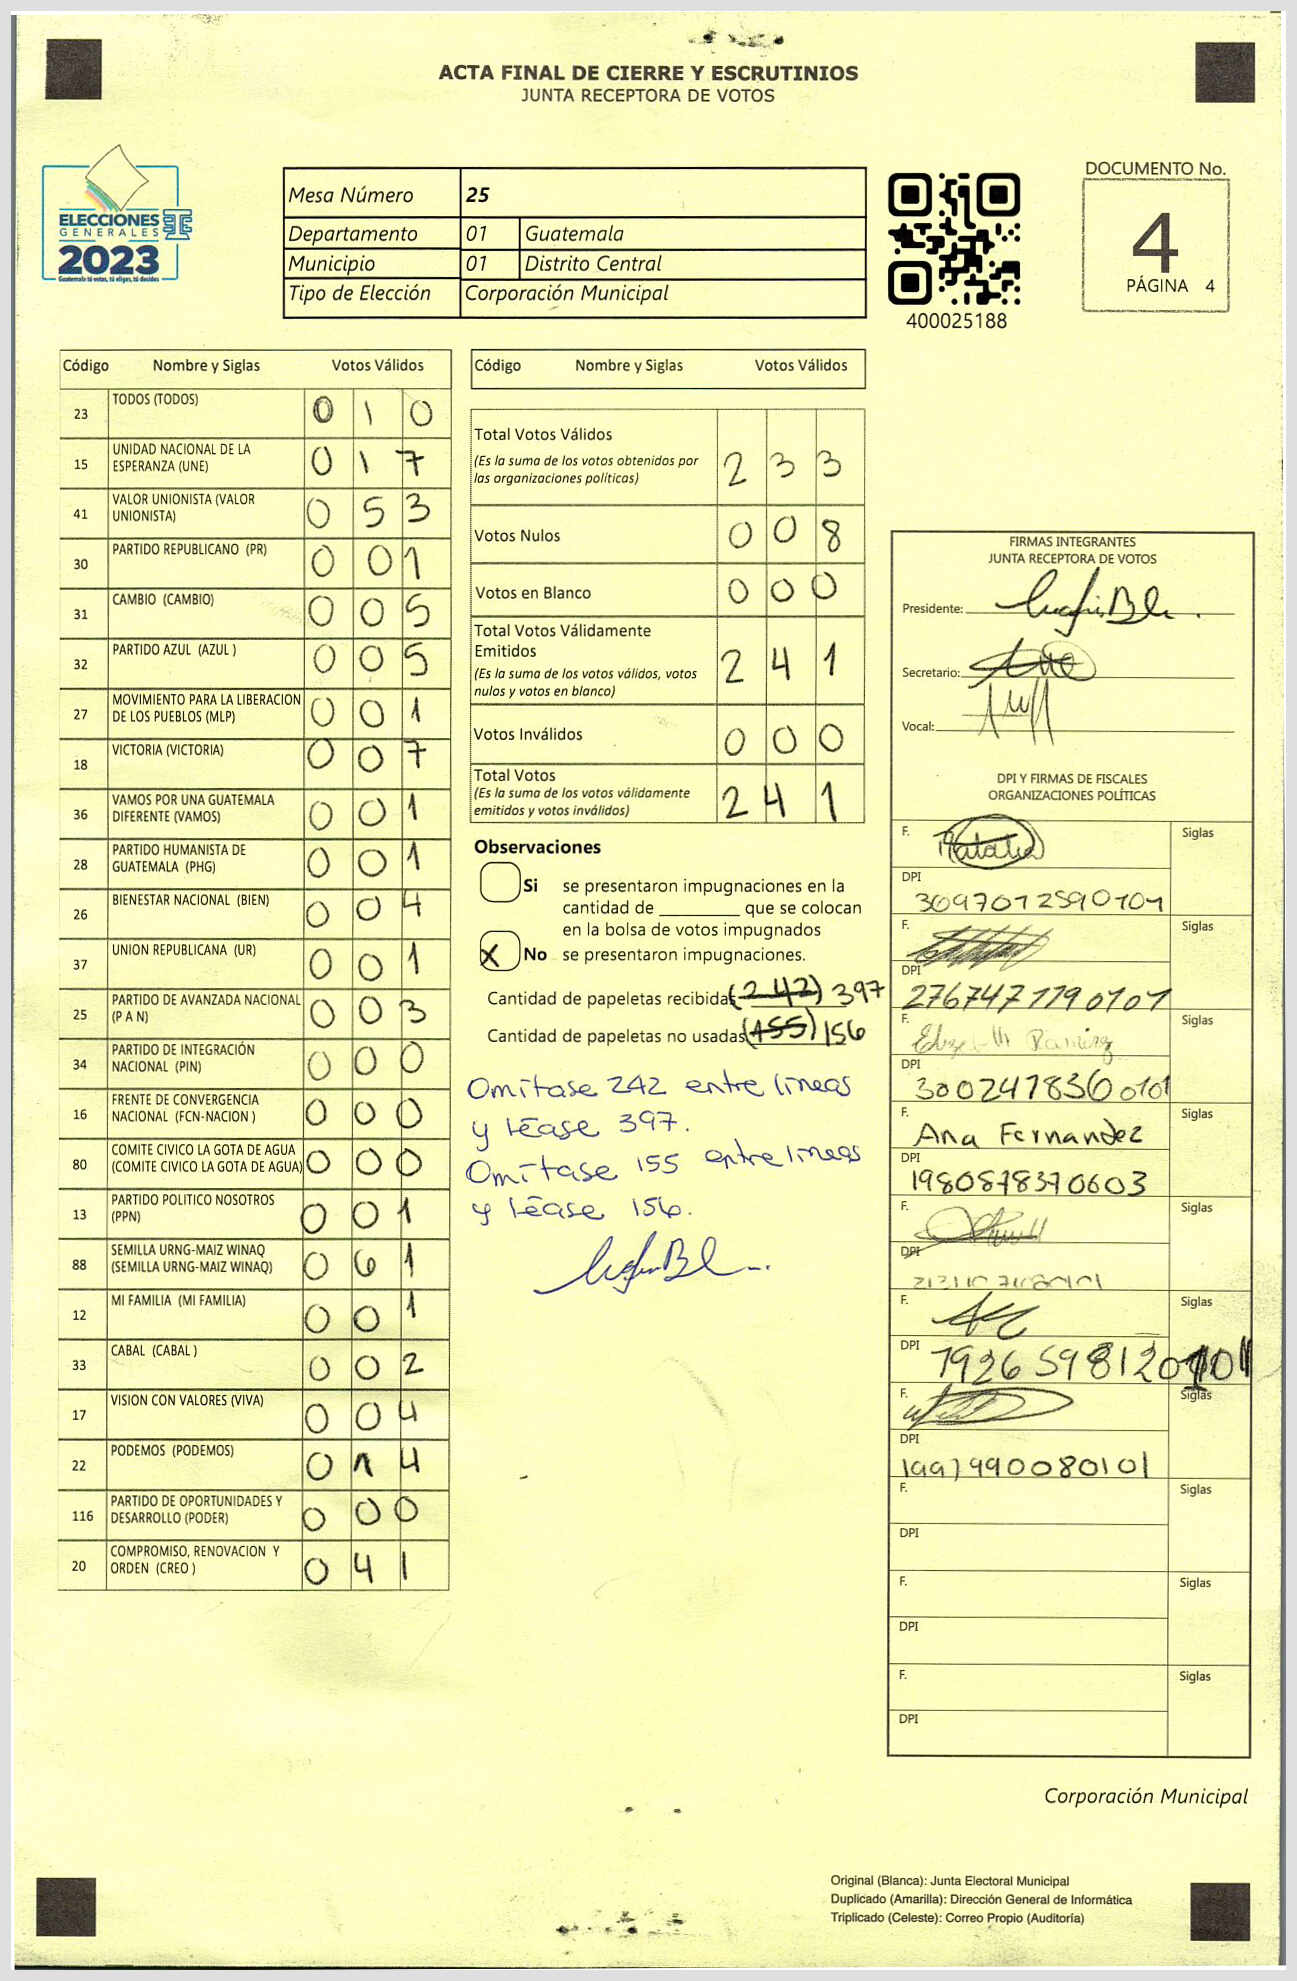 ACTA FINAL DE CIERRE Y ESCRUTINIOS
JUNTA RECEPTORA DE VOTOS
ELECCIONES
GENERALES
2023
Guatemala tú votas, tú eliges, tú decides
Mesa Número 25
Departamento 01 Guatemala
Municipio 01 Distrito Central
Tipo de Elección Corporación Municipal
400025188
DOCUMENTO No.
4
PÁGINA 4
Código Nombre y Siglas Votos Válidos
23 TODOS (TODOS) 0 1 0
15 UNIDAD NACIONAL DE LA
ESPERANZA (UNE) 0 1 7
41 VALOR UNIONISTA (VALOR
UNIONISTA) 0 5 3
30 PARTIDO REPUBLICANO (PR) 0 0 1
31 CAMBIO (CAMBIO) 0 0 5
32 PARTIDO AZUL (AZUL ) 0 0 5
27 MOVIMIENTO PARA LA LIBERACION
DE LOS PUEBLOS (MLP) 0 0 1
18 VICTORIA (VICTORIA) 0 0 7
36 VAMOS POR UNA GUATEMALA
DIFERENTE (VAMOS) 0 0 1
28 PARTIDO HUMANISTA DE
GUATEMALA (PHG) 0 0 1
26 BIENESTAR NACIONAL (BIEN) 0 0 4
37 UNION REPUBLICANA (UR) 0 0 1
25 PARTIDO DE AVANZADA NACIONAL
(P A N) 0 0 3
34 PARTIDO DE INTEGRACIÓN
NACIONAL (PIN) 0 0 0
16 FRENTE DE CONVERGENCIA
NACIONAL (FCN-NACION ) 0 0 0
80 COMITE CIVICO LA GOTA DE AGUA
(COMITE CIVICO LA GOTA DE AGUA) 0 0 0
13 PARTIDO POLITICO NOSOTROS
(PPN) 0 0 1
88 SEMILLA URNG-MAIZ WINAQ
(SEMILLA URNG-MAIZ WINAQ) 0 6 1
12 MI FAMILIA (MI FAMILIA) 0 0 1
33 CABAL (CABAL ) 0 0 2
17 VISION CON VALORES (VIVA) 0 0 4
22 PODEMOS (PODEMOS) 0 1 4
116 PARTIDO DE OPORTUNIDADES Y
DESARROLLO (PODER) 0 0 0
20 COMPROMISO, RENOVACION Y
ORDEN (CREO ) 0 4 1
Código Nombre y Siglas Votos Válidos
Total Votos Válidos
(Es la suma de los votos obtenidos por
las organizaciones políticas) 2 3 3
Votos Nulos 0 0 8
Votos en Blanco 0 0 0
Total Votos Válidamente
Emitidos
(Es la suma de los votos válidos, votos
nulos y votos en blanco) 2 4 1
Votos Inválidos 0 0 0
Total Votos
(Es la suma de los votos válidamente
emitidos y votos inválidos) 2 4 1
Observaciones
Si se presentaron impugnaciones en la
cantidad de ________ que se colocan
en la bolsa de votos impugnados
X No se presentaron impugnaciones.
Cantidad de papeletas recibidas (242) 397
Cantidad de papeletas no usadas (155) 156
Omítase 242 entre líneas
y léase 397.
Omítase 155 entre líneas
y léase 156.
FIRMAS INTEGRANTES
JUNTA RECEPTORA DE VOTOS
Presidente:
Secretario:
Vocal:
DPI Y FIRMAS DE FISCALES
ORGANIZACIONES POLÍTICAS
F. Natalia Siglas
DPI
3097012590101
F. Siglas
DPI
2767471190101
F. Elizabeth Ramírez Siglas
DPI
3002478360101
F. Ana Fernandez Siglas
DPI
1980878370603
F. Siglas
DPI
F. Siglas
DPI
F. Siglas
DPI
1997990080101
F. Siglas
DPI
F. Siglas
DPI
F. Siglas
DPI
Corporación Municipal
Original (Blanca): Junta Electoral Municipal
Duplicado (Amarilla): Dirección General de Informática
Triplicado (Celeste): Correo Propio (Auditoría)